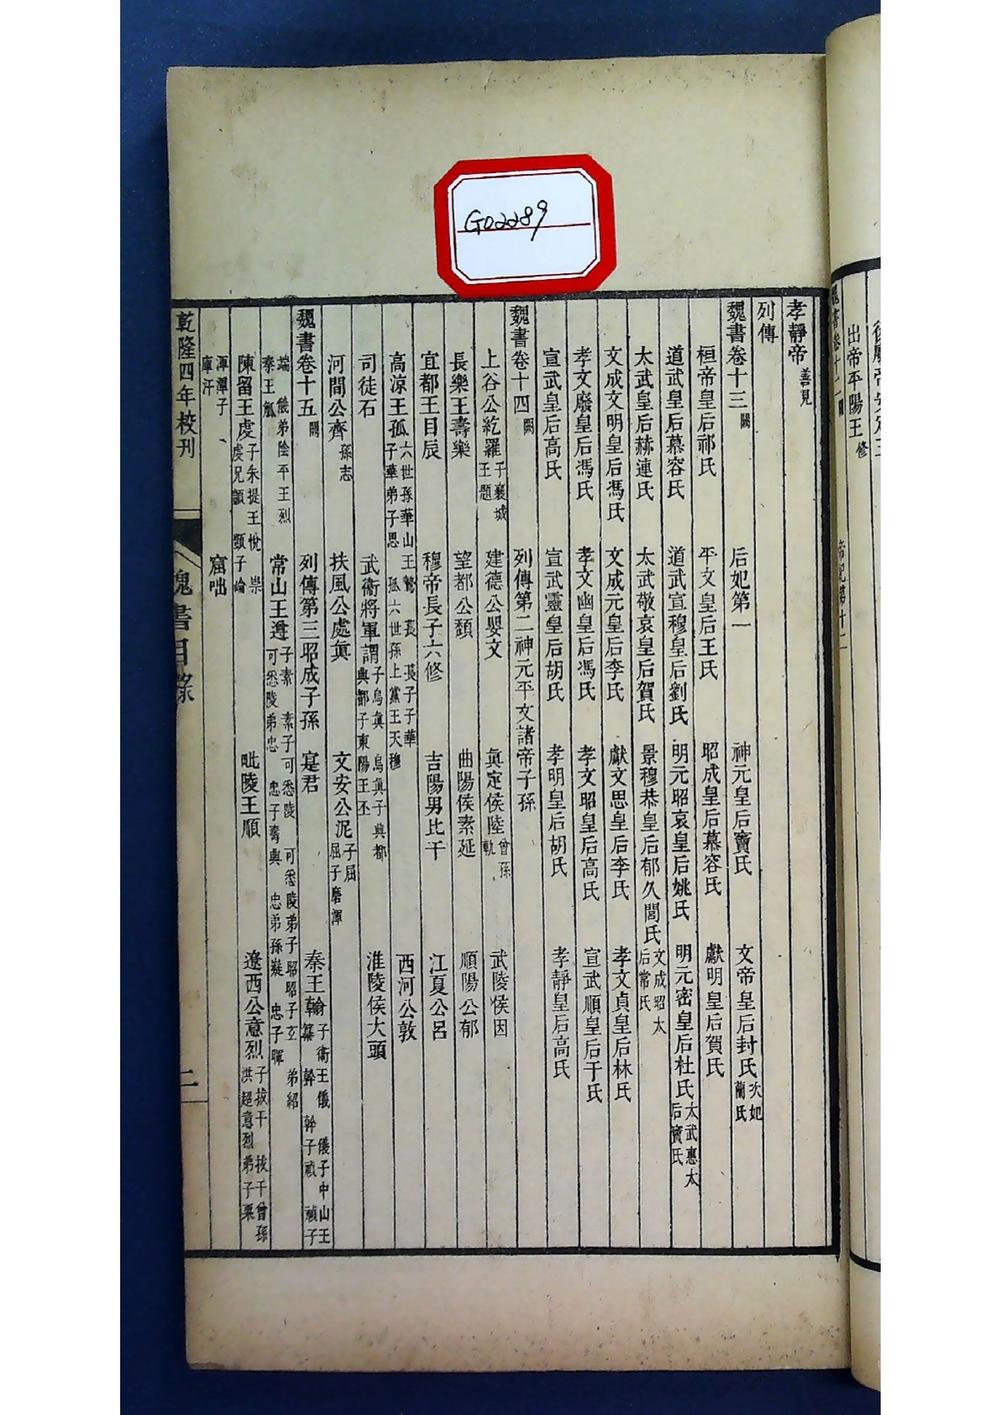 G02289
出帝平陽王修
孝靜帝善見
列傳
魏書卷十三闕 后妃第一 神元皇后竇氏 文帝皇后封氏次妃蘭氏
桓帝皇后祁氏 平文皇后王氏 昭成皇后慕容氏 獻明皇后賀氏
道武皇后慕容氏 道武宣穆皇后劉氏 明元昭哀皇后姚氏 明元密皇后杜氏太武惠太后竇氏
太武皇后赫連氏 太武敬哀皇后賀氏 景穆恭皇后郁久閭氏文成昭太后常氏
文成文明皇后馮氏 文成元皇后李氏 獻文思皇后李氏 孝文貞皇后林氏
孝文廢皇后馮氏 孝文幽皇后馮氏 孝文昭皇后高氏 宣武順皇后于氏
宣武皇后高氏 宣武靈皇后胡氏 孝明皇后胡氏 孝靜皇后高氏
魏書卷十四闕 列傳第二神元平文諸帝子孫
上谷公紇羅子襄城王題 建德公嬰文 眞定侯陸曾孫軌 武陵侯因
長樂王壽樂 望都公頹 曲陽侯素延 順陽公郁
宜都王目辰 穆帝長子六修 吉陽男比干 江夏公呂
高涼王孤六世孫華山王鷙 長子子華 子華弟子思 孤六世孫上黨王天穆 西河公敦
司徒石 武衛將軍謂子烏眞 烏眞子興都 興都子東陽王丕 淮陵侯大頭
河間公齊孫志 扶風公處眞 文安公泥子屈 屈子磨渾
魏書卷十五闕 列傳第三昭成子孫 寔君 秦王翰子衛王儀 儀子中山王纂 幹 幹子禎 禎子瑞 儀弟陰平王烈
秦王觚 常山王遵子素 素子可悉陵 可悉陵弟子昭 昭子玄 弟紹 可悉陵弟忠 忠子壽興 忠弟孫嶷 忠子暉
陳留王虔子朱提王悅 崇 虔兄顗 顗子崘 毗陵王順 遼西公意烈子拔干 拔干曾孫洪超 意烈弟子粟
渾 渾子庫汗 窟咄
乾隆四年校刊 魏書目錄 二